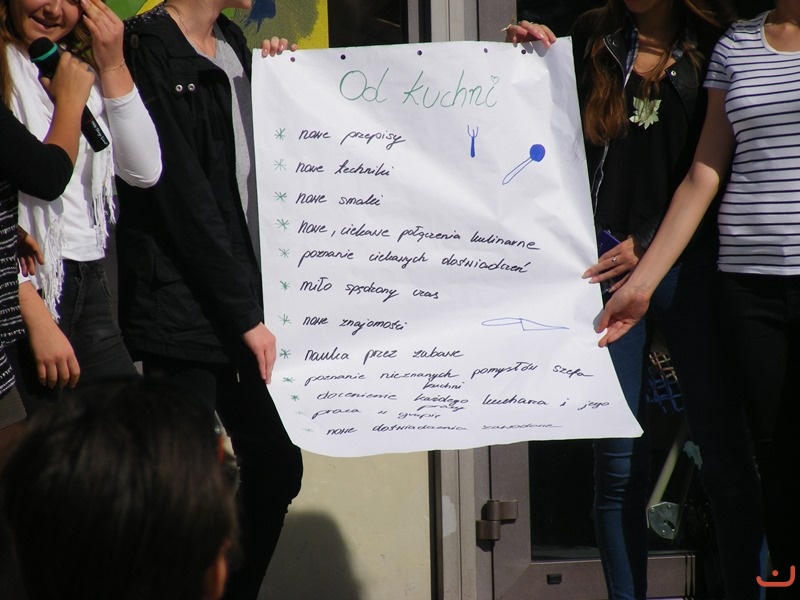 Od kuchni
* nowe przepisy
* nowe techniki
* nowe smaki
* nowe, ciekawe połączenia kulinarne
* poznanie ciekawych doświadczeń
* miło spędzony czas
* nowe znajomości
* nauka przez zabawę
* poznanie nieznanych pomysłów szefa
kuchni
* docenienie każdego kucharza i jego
pracy
praca w grupie
nowe doświadczenia zawodowe